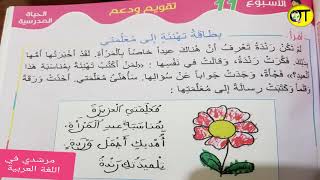 الحياة المدرسية
تقويم ودعم
الأسبوع 11
أقرأ
بطاقة تهنئة إلى معلمتي
لم تكن رندة تعرف أن هناك عيدا خاصا بالمرأة. لقد أخبرتها أمها
بذلك، ففكرت رندة، وقالت في نفسها : «لمن أكتب تهنئة بمناسبة هذا
العيد؟» فجأة، وجدت جوابا عن سؤالها. سأهنئ معلمتي. أخذت ورقة
وقلما وكتبت رسالة إلى معلمتها:
معلمتي العزيزة
بمناسبة عيد المرأة
أهديك أجمل وردة
تلميذتك رندة
مرشدي في
اللغة العربية